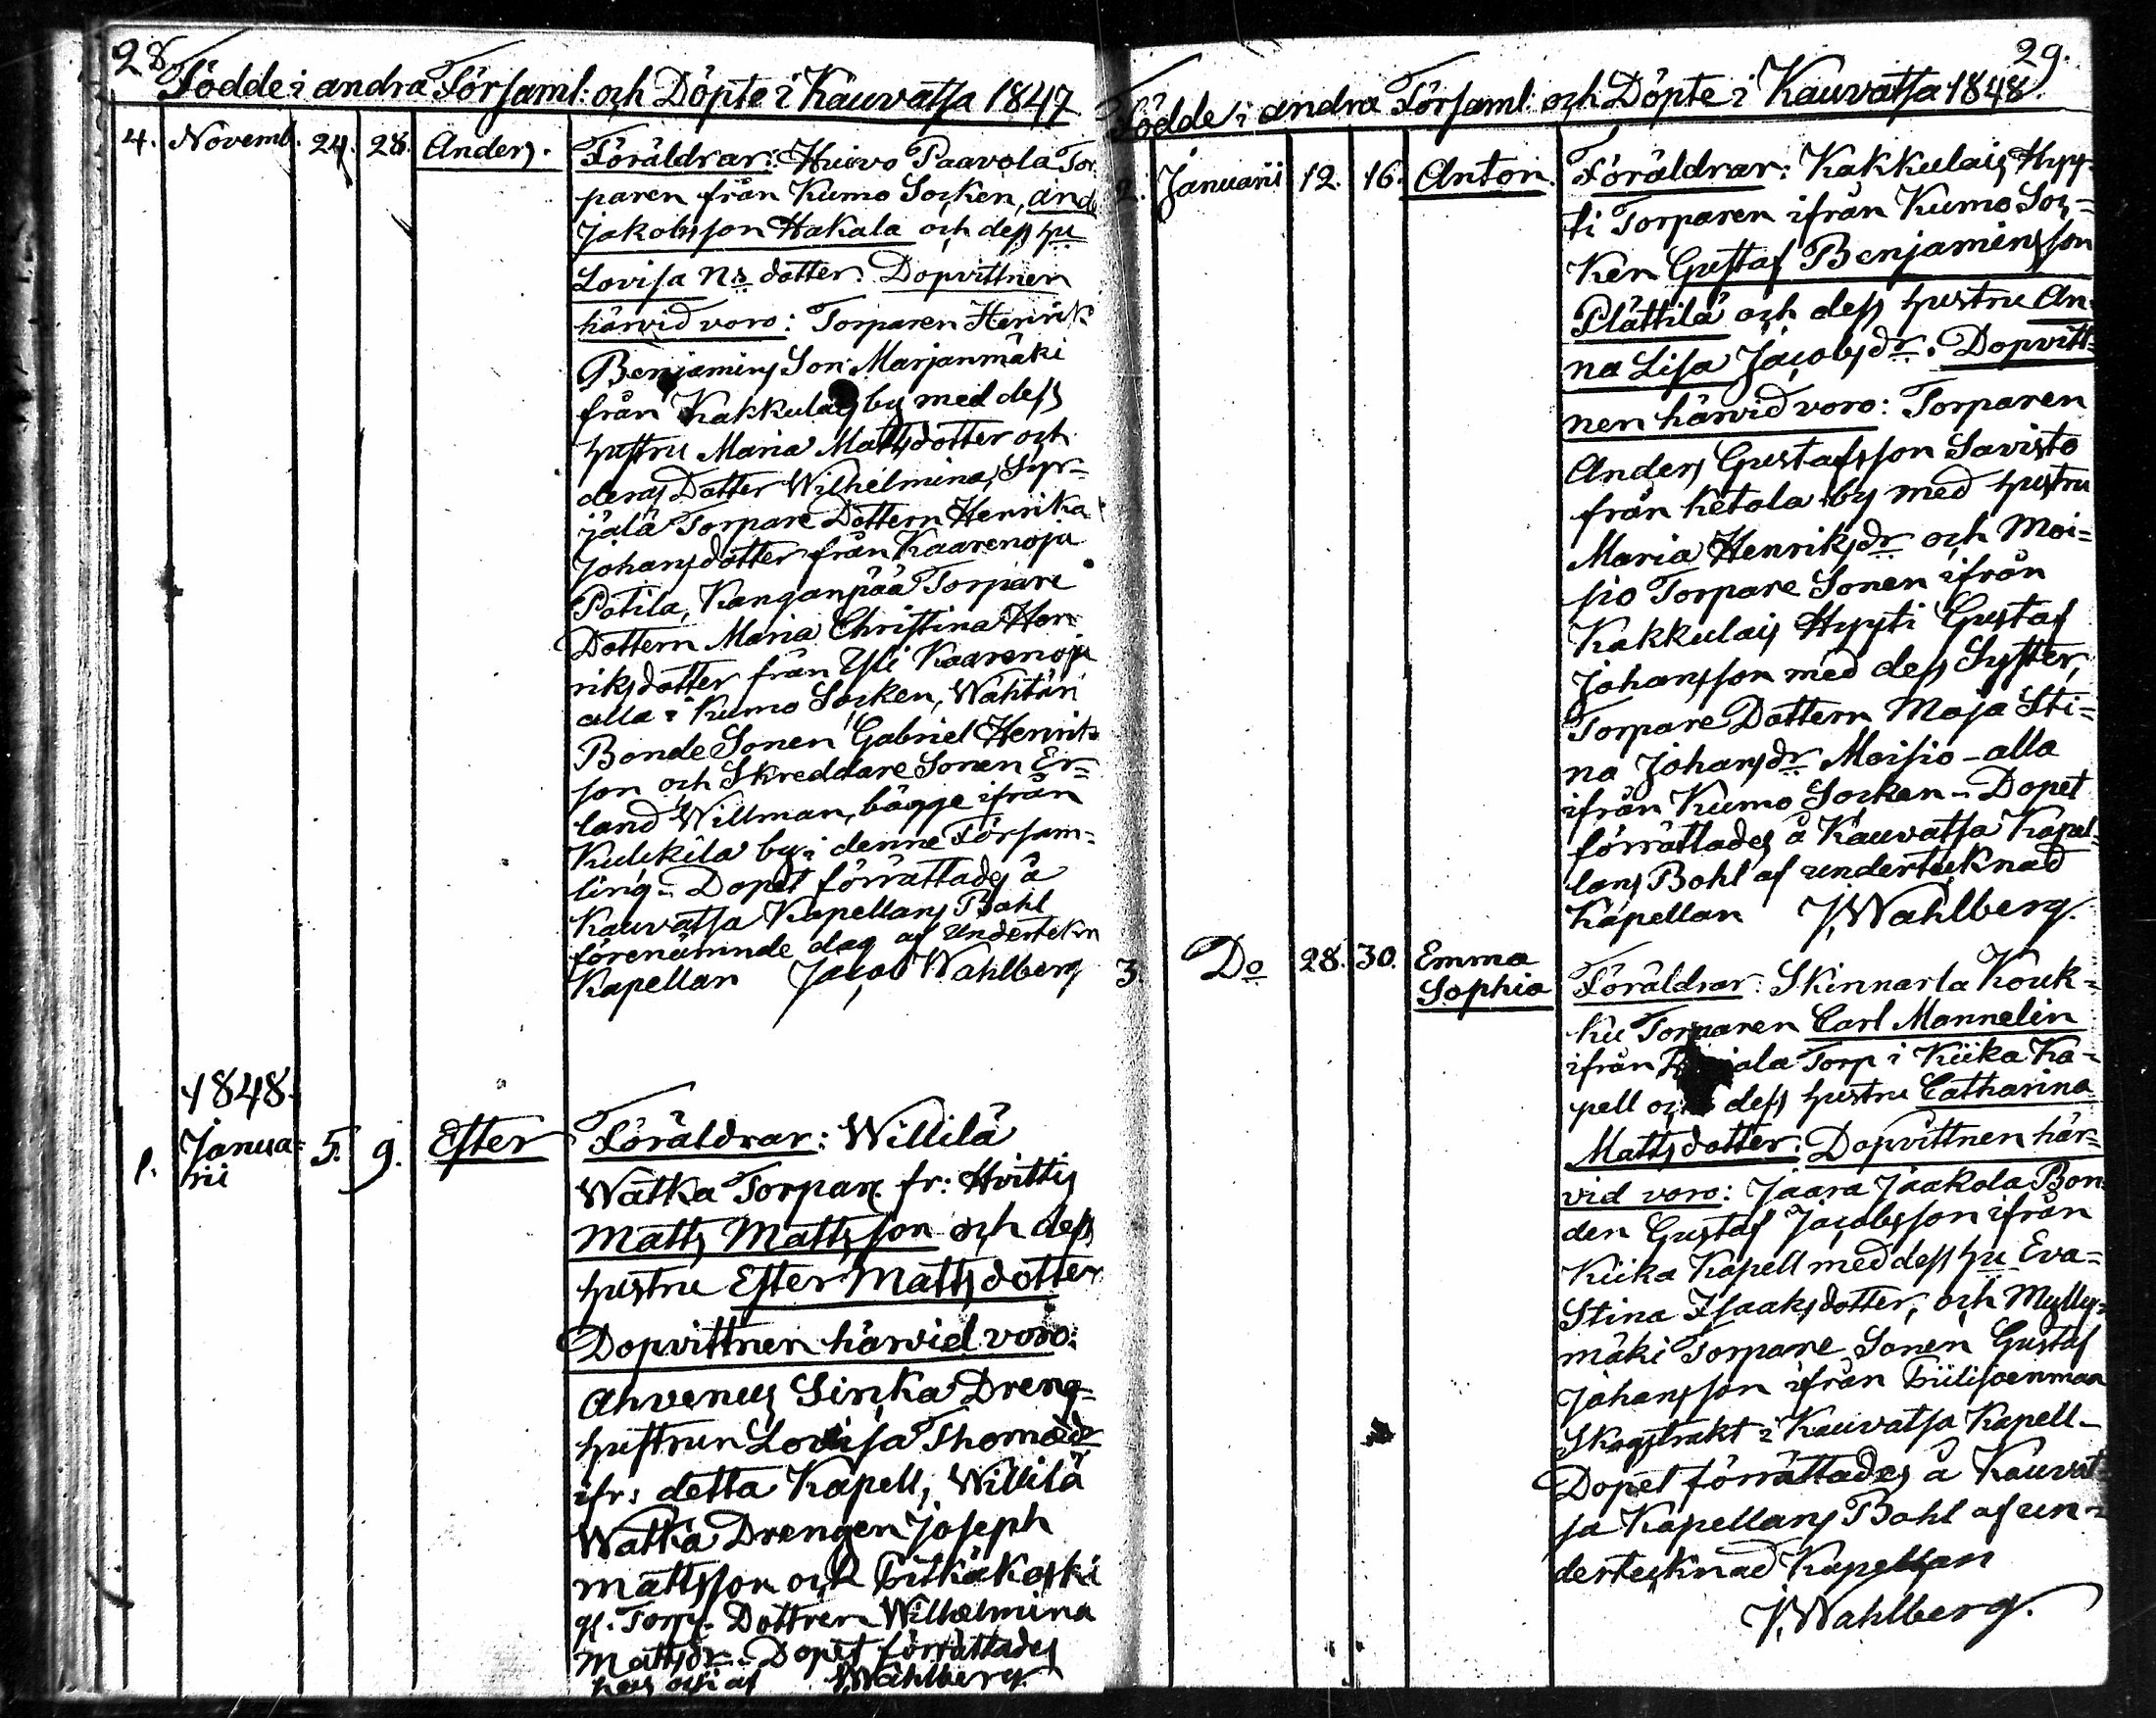 28.
Födde i andra Församl: och Döpte i Kauvatsa 1847
4. Novemb. 24. 28. Anders.
Föräldrar: Huivo Paavola Tor-
paren från Kumo Socken, And.
Jakobsson Hakala och dess hu
Lovisa Ns dotter. Dopvittnen
härvid voro: Torparen Henrik
Benjamins Son Marjanmäki
från Kakkulais by med dess
hustru Maria Mattsdotter och
deras Dotter Wilhelmina, Syr-
jälä Torpare Dottern Henrika
Johansdotter från Kaarenoja
Potila, Kanganpää Torpare
Dottern Maria Christina Hen
riksdotter från Yli Kaarenoja
alla i Kumo Socken, Wähtäri
Bonde Sonen Gabriel Henriks
son och Skreddare Sonen Er=
land Willman, bägge ifrån
Kulkila by i denne Försam=
ling. Dopet förrättades å
Kauvatsa Kapellans Bohl
förenämnde dag af undertekn
Kapellan Jacob Wahlberg
1848.
1. Janua=
rii 5. 9. Ester
Föräldrar: Willilä
Watka Torpar. fr: Hvittis
Matts Mattsson och dess
hustru Ester Mattsdotter
Dopvittnen härvid voro:
Ahvenus Sinka Dreng=
hustrun Lovisa Thomædr
ifr: detta Kapell, Willilä
Watka Drengen Joseph
Mattsson och
gl. Torp. Dottren Wilhelmina
Mattsdr. Dopet förrättades
J Wahlberg
29.
Födde i andra Församl. och Döpte i Kauvatsa 1848.
2. Januarii 12. 16. Anton.
Föräldrar: Kakkulais Hyp-
ti Torparen ifrån Kumo Soc=
ken Gustaf Benjaminsson
Plättilä och dess hustru An-
na Lisa Jacobsdr. Dopvitt=
nen härvid voro: Torparen
Anders Gustafsson Savisto
från Ketola by med hustru
Maria Henriksdr och Moi=
sio Torpare Sonen ifrån
Kakkulais Hypti Gustaf
Johansson med dess Syster,
Torpare Dottern Maja Sti=
na Johansdr Moisio - alla
ifrån Kumo Socken - Dopet
förrättades å Kauvatsa Kapel-
lans Bohl af undertecknad
Kapellan J. Wahlberg.
3. Do 28. 30. Emma
Sophia
Föräldrar: Skinnarla Kouk=
ku Torparen Carl Mannelin
ifrån Torp i Kiika Ka=
pell och dess hustru Catharina
Mattsdotter: Dopvittnen här=
vid voro: Jaara Jaakola Bon-
den Gustaf Jacobsson ifrån
Kiika Kapell med dess hu Eva=
Stina Isaaksdotter, och Mylly=
mäki Torpare Sonen Gustaf
Johansson ifrån Piilijoenmaa
Skogstrakt i Kauvatsa Kapell-
Dopet förrättades å Kauvat=
sa Kapellans Bohl af un=
dertecknad Kapellan
J. Wahlberg.